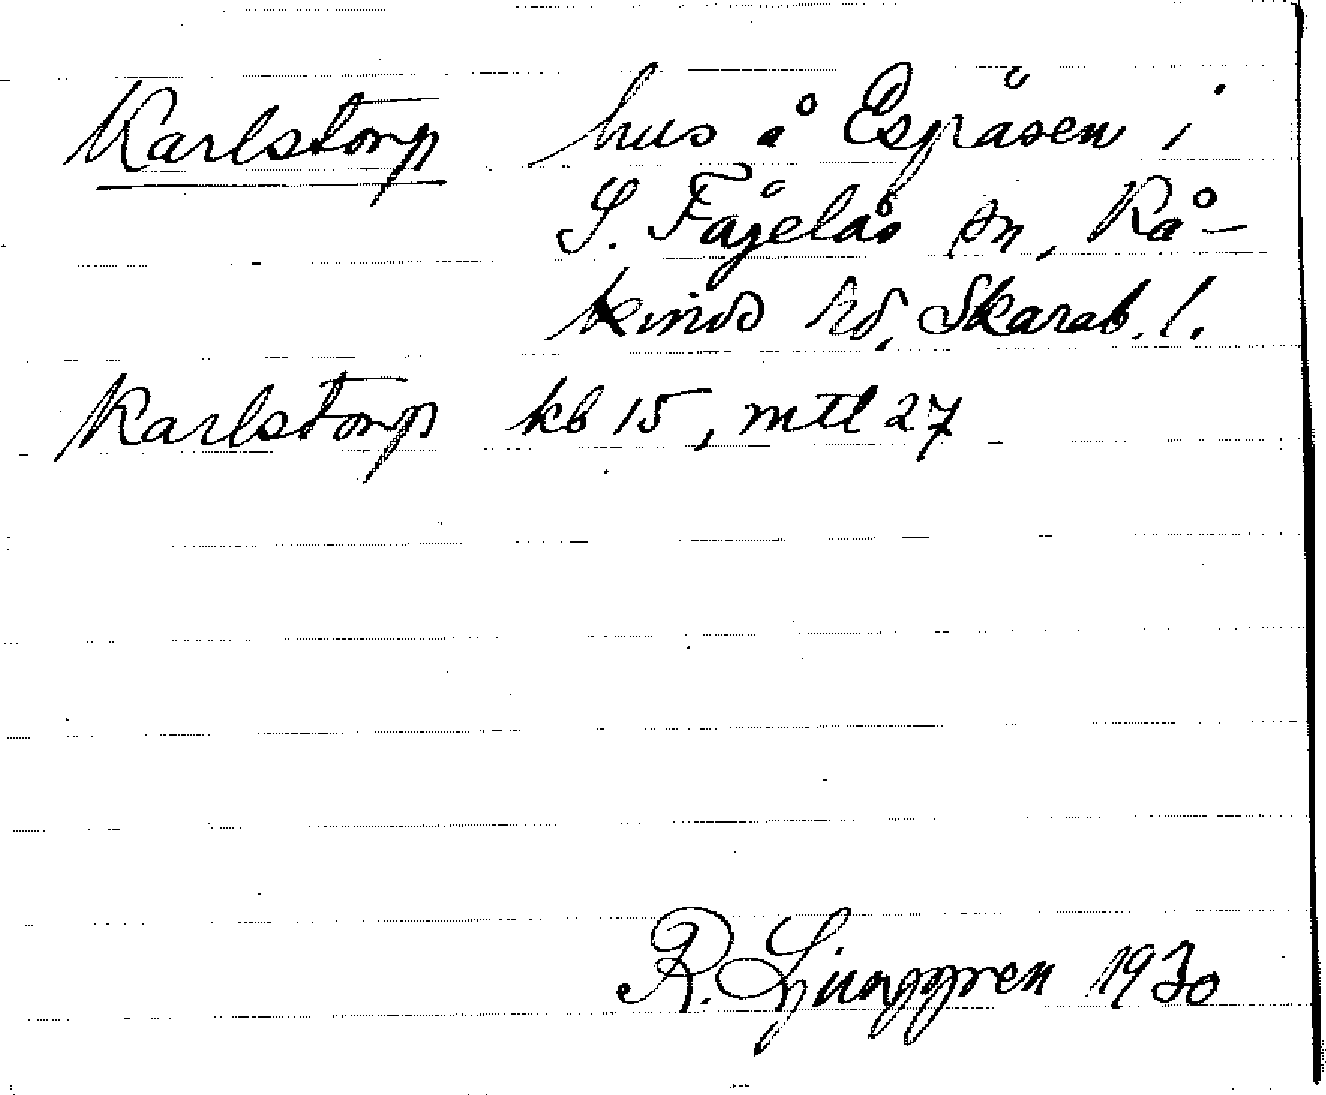 Karlstorp hus å Espåsen i
S. Fågelås sn, Kå-
kinds hd, Skarab. l.
Karlstorp kb 15, mtl 27
R. Ljunggren 1930